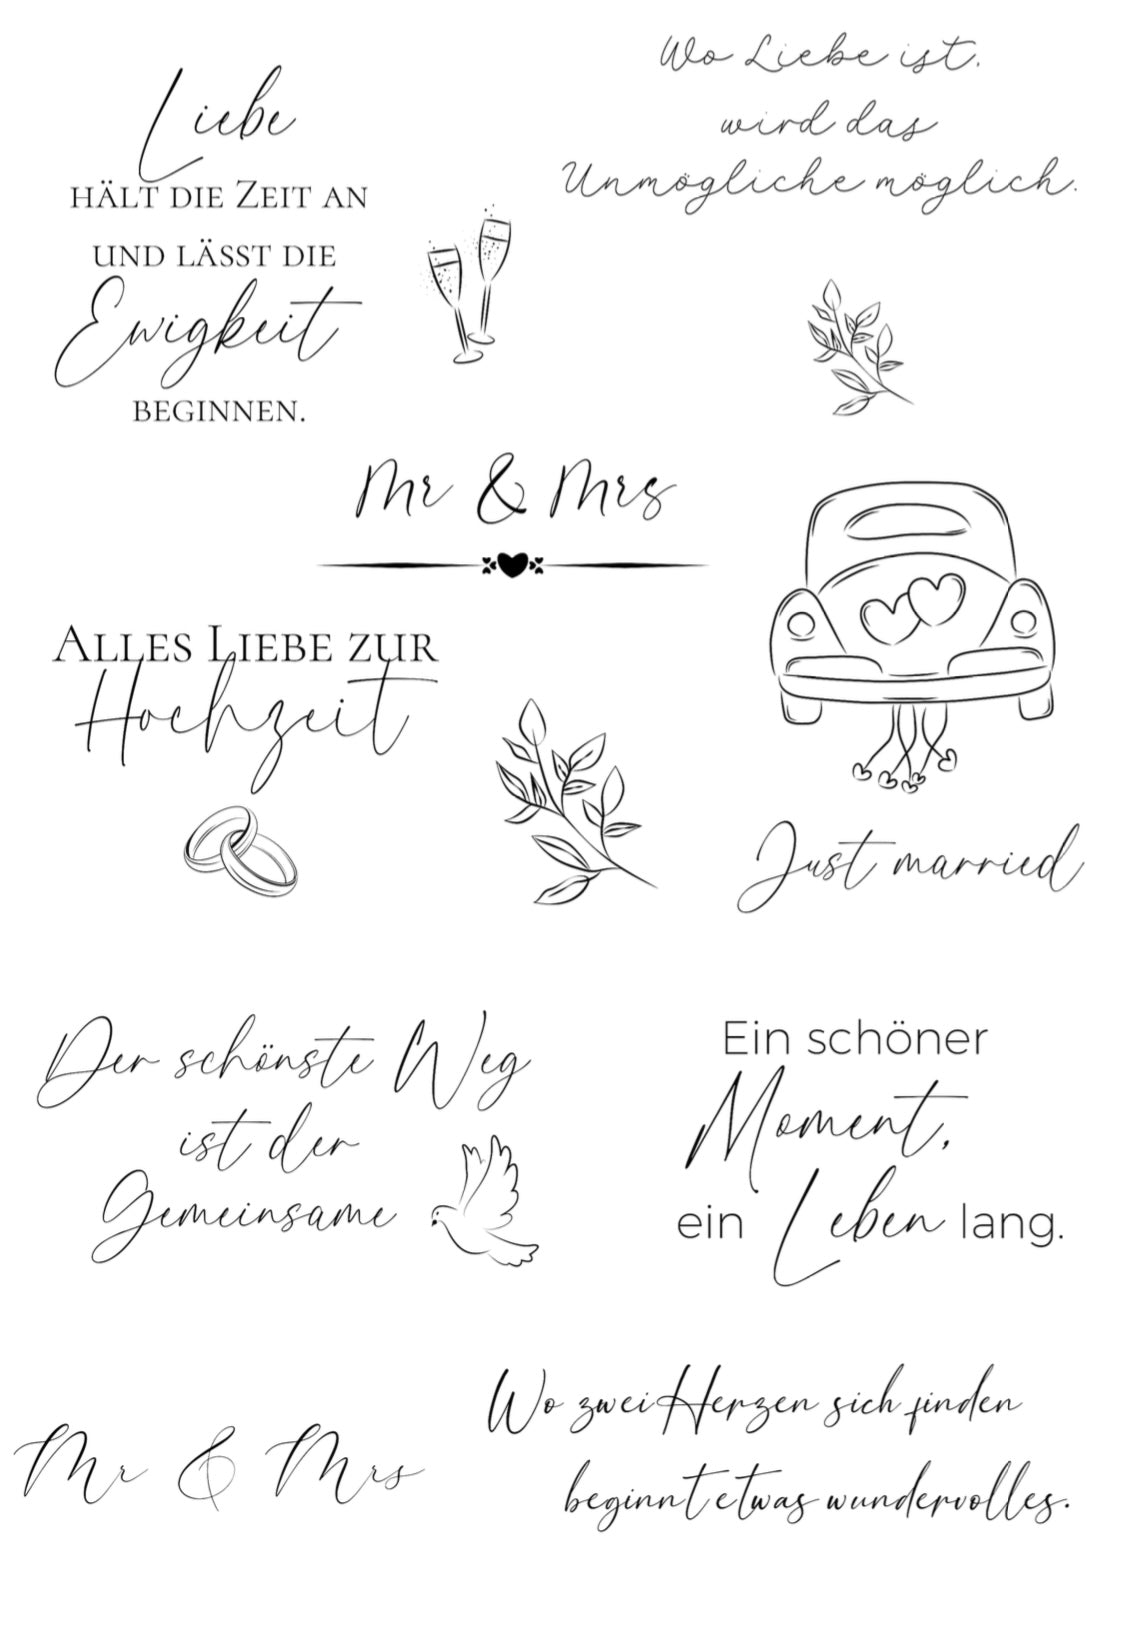 Liebe
hält die Zeit an
und lässt die
Ewigkeit
beginnen.
Wo Liebe ist.
wird das
Unmögliche möglich.
Mr & Mrs
Alles Liebe zur
Hochzeit
Just married
Der schönste Weg
ist der
Gemeinsame
Ein schöner
Moment,
ein Leben lang.
Mr & Mrs
Wo zwei Herzen sich finden
beginnt etwas wundervolles.